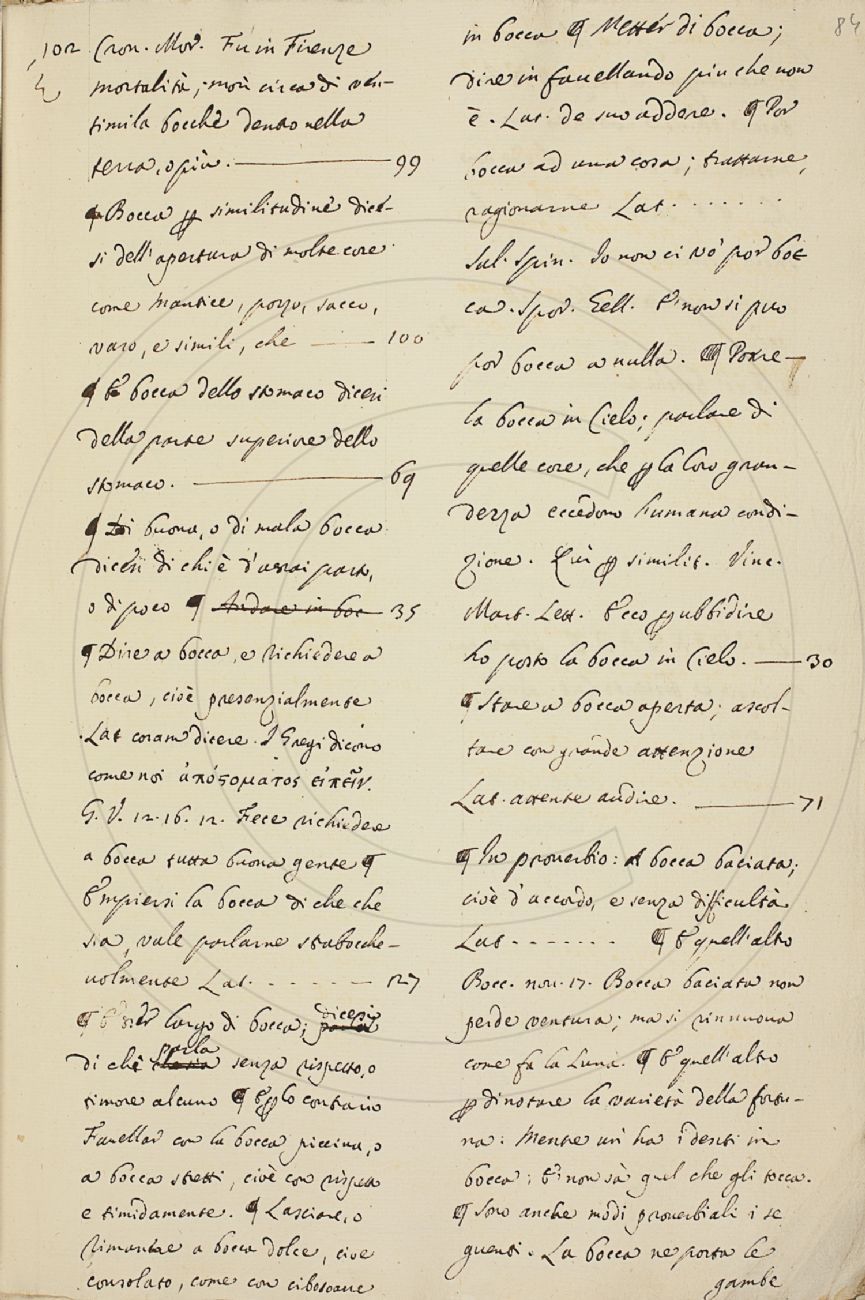 84
102 Cron. Mor. Fu in Firenze
mortalità, morì circa di ven-
timila bocche dentro nella
terra, o più. 99
¶ Bocca per similitudine dice-
si dell'apertura di molte cose
come mantice, pozzo, sacco,
vaso, e simili, che 100
¶ E bocca dello stomaco dicesi
della parte superiore dello
stomaco. 69
¶ Di buona, o di mala bocca
dicesi di chi è d'assai pasto,
o di poco ¶ Andare in boc- 35
¶ Dire a bocca, e richiedere a
bocca, cioè presenzialmente
Lat coram dicere. I Gregi dicono
come noi ἀπὸ στόματος εἰπεῖν.
G. V. 12. 16. 12. Fece richiedere
a bocca tutta buona gente ¶
Empiersi la bocca di che che
sia, vale parlarne strabocche-
volmente Lat. - - - - - - 127
¶ Esser largo di bocca; dicesi
di chi parla senza rispetto, o
timore alcuno ¶ E per lo contrario
Favellar con la bocca piccina, o
a bocca stretti, cioè con rispetto
e timidamente. ¶ Lasciare, o
rimanere a bocca dolce, cioè
consolato, come con cibo soave
in bocca ¶ Metter di bocca;
dire in favellando più che non
è. Lat. de suo addere. ¶ Por
bocca ad una cosa; trattarne,
ragionarne Lat. . . . . . .
Sal. Spin. Io non ci vò por boc
ca. Spor. Gell. E non si può
por bocca a nulla. ¶ Porre
la bocca in Cielo; parlare di
quelle cose, che per la loro gran-
dezza eccedono l'umana condi-
zione. Qui per similit. Vinc.
Mart. Lett. Ecco per ubbidire
ho posto la bocca in Cielo. 30
¶ Stare a bocca aperta; ascol-
tare con grande attenzione
Lat. attente audire. 71
¶ In proverbio: A bocca baciata;
cioè d'accordo, e senza difficultà
Lat - - - - - - - ¶ E quell'altro
Bocc. nov. 17. Bocca baciata non
perde ventura; ma si rinnuova
come fa la Luna. ¶ E quell'altro
per dinotare la varietà della fortu-
na: Mentre uri ha i denti in
bocca; E non sà quel che gli tocca.
¶ Sono anche modi proverbiali i se
guenti. La bocca ne porta le
gambe